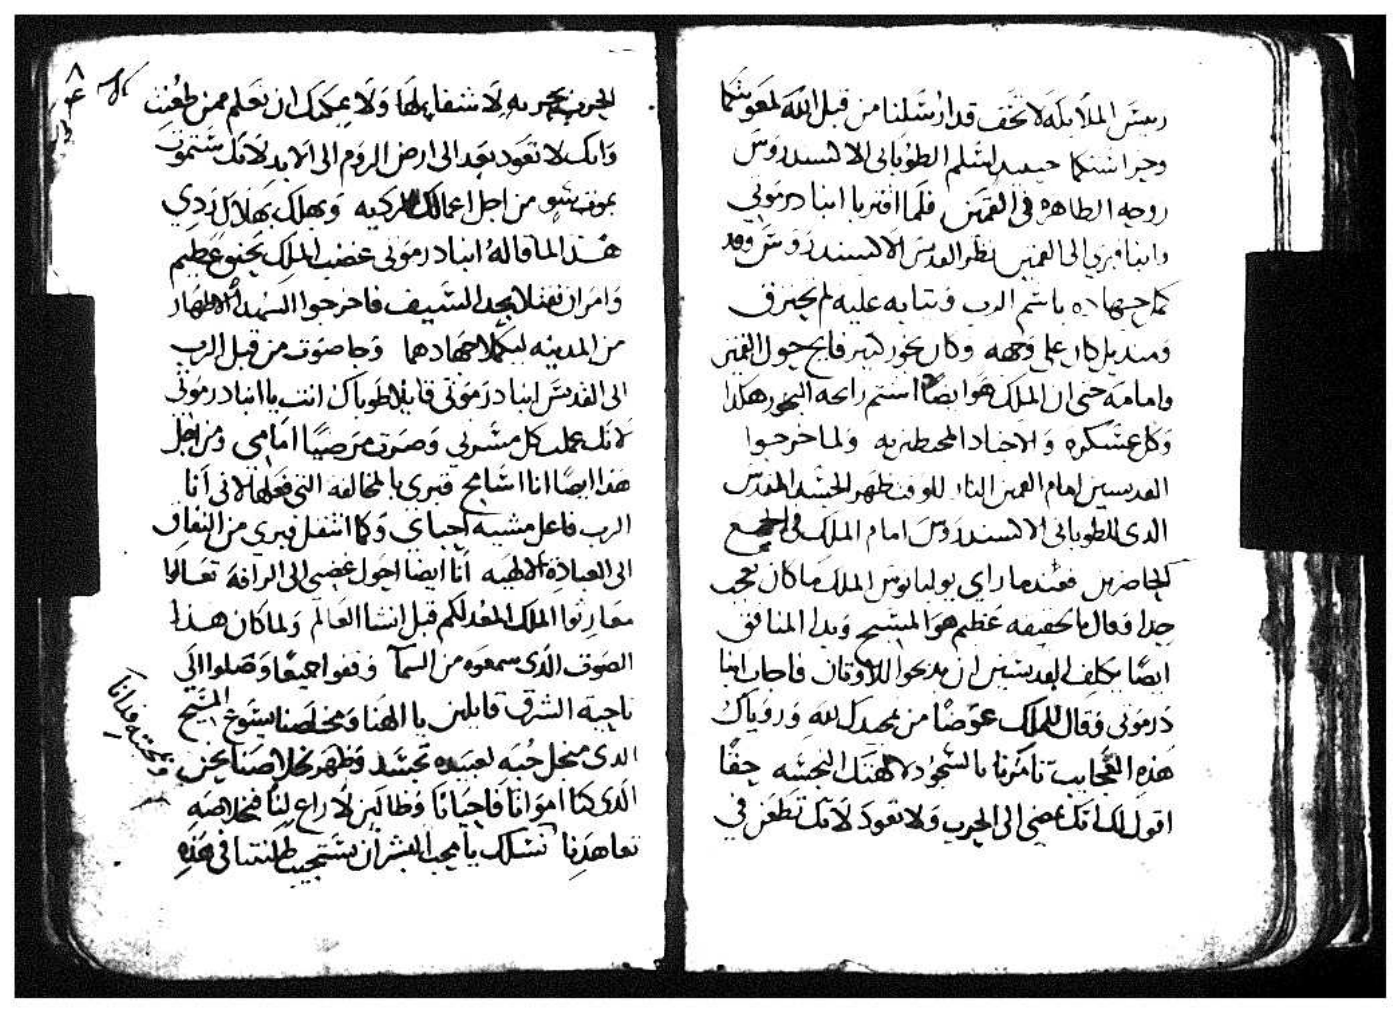 ريس الملايكه لا تخف قد ارسلنا من قبل الله لمعونتكما
وحراستكما حينيد اسلم الطوبانى الاكسندروس
روحه الطاهره فى القمين فلما اقتربا انبا درمونى
وانبا فبرى الى القمين نظر القديس الاكسندروس وقد
كمل جهاده باسم الرب وثيابه عليه لم تحترق
ومنديل كان على وجهه وكان بخور كثير فايح حول القمين
وامامه حتى ان الملك هو ايضا استم رايحه البخور هكدا
وكل عسكره والاجناد المحيطين به ولما خرجوا
القديسين امام القمين النار للوقت ظهر الجسد المقدس
الدى للطوبانى الاكسندروس امام الملك فى الجمع
الحاضرين فعندما راي يوليانوس الملك ما كان تعجب
جدا وقال بالحقيقه عظيم هو المسيح وبدا المنافق
ايضا يكلف القديسين ان يدبحوا للاوتان فاجاب انبا
درمونى وقال للملك عوضا من تمجدك لله ورويتك
هذه العجايب تامرنا بالسجود لالهتك النجسه حقا
اقول لك انك تمضى الى الحرب ولا تعود لانك تطعن في
الحرب بحربه لا شفا لها ولا يمكنك ان تعلم ممن طعنت
وانك لا تعود بعد الى ارض الروم الى الابد لانك ستموت
بموت سو من اجل اعمالك الرديه ويهلك بهلاك ردي
هذا لما قاله انبا درمونى غضب الملك بحنق عظيم
وامر ان نقتلا بحد السيف فاخرجوا الشهدا الاطهار
من المدينه ليكملا جهادهما وجا صوت من قبل الرب
الى القديس انبا درمونى قايلا طوباك انت يا انبا درمونى
لانك عملت كل مسرتي وصرت مرضيا امامي ومن اجل
هذا ايضا انا اسامح فبرى بالمخالفه التى فعلها لانى انا
الرب فاعل مشيه احباى وكما انتقل فبري من النفاق
الى العباده الالهيه انا ايضا احول غضبى الى الرافه تعالوا
معا رثوا الملك المعد لكم قبل انشا العالم ولما كان هذا
الصوت الدى سمعوه من السما وقفوا جميعا وصلوا الي
ناحية الشرق قايلين يا الهنا ومخلصنا يسوع المسيح
الدى من اجل حبه لعبيده تجسد وظهر لخلاصنا نحن
الذى كنا امواتا فاحيانا وضالين لا راع لنا فبخلاصه
تعاهدنا نسلك يا محب البشر ان تستجيب طلبتنا فى هذه